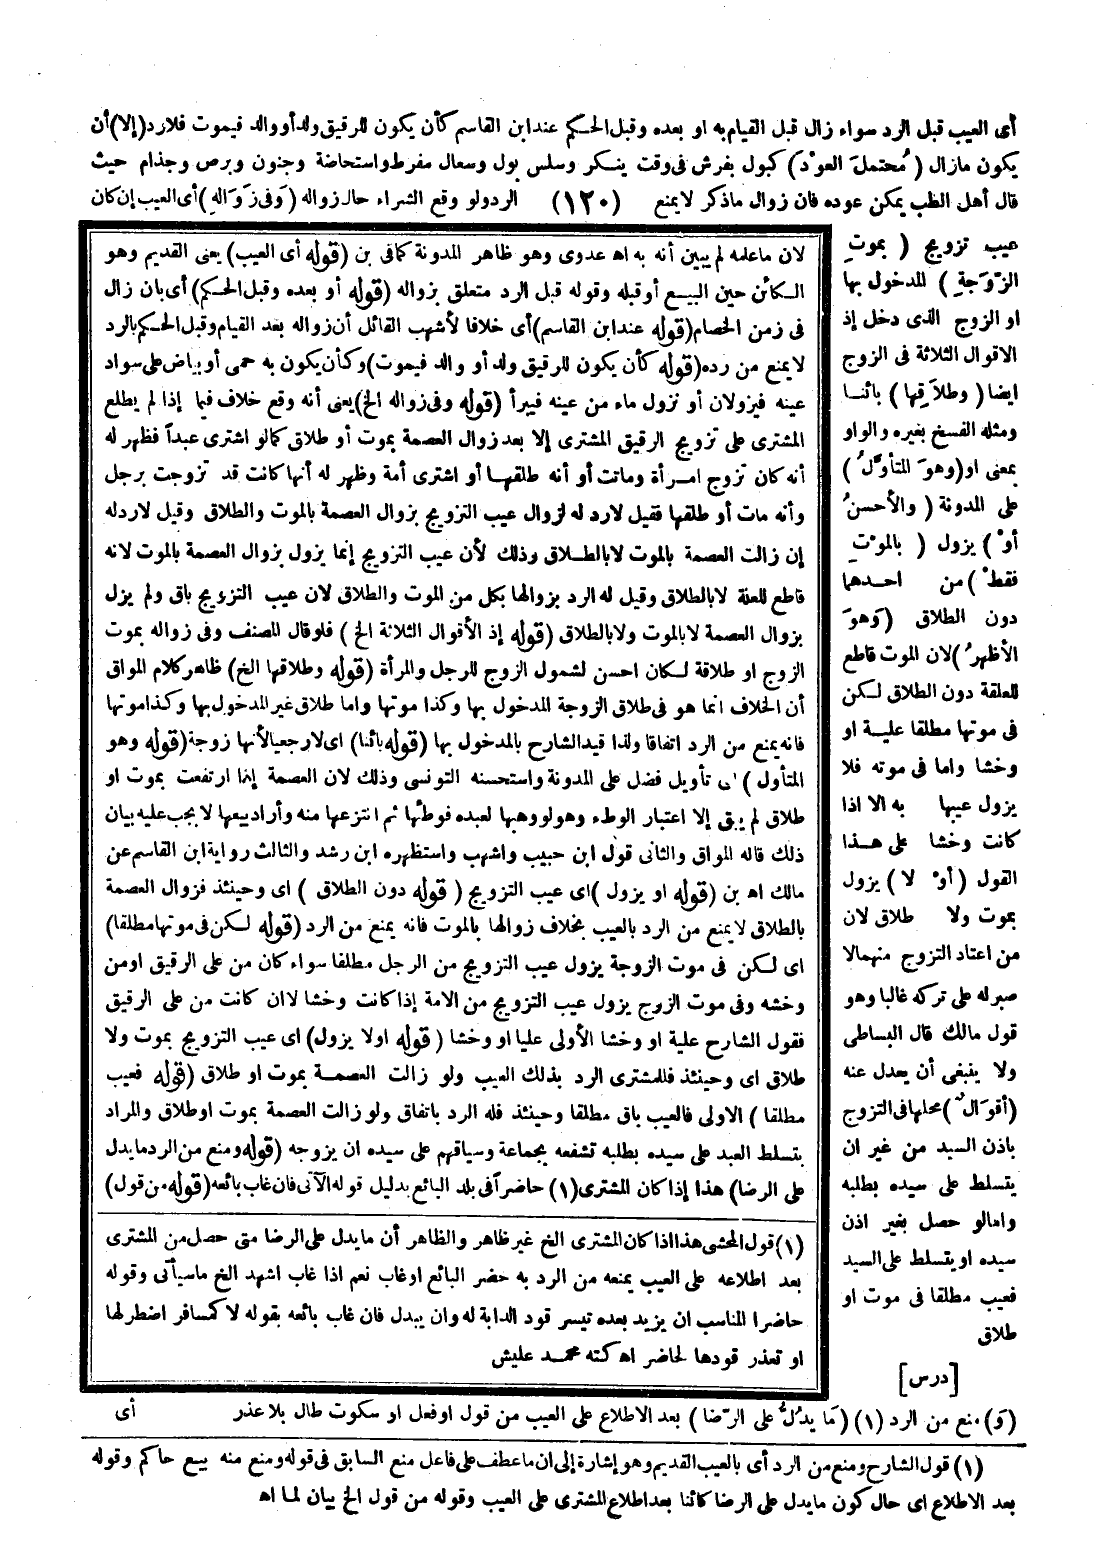 أى العيب قبل الرد سواء زال قبل القيام به او بعده وقبل الحكم عند ابن القاسم كأن يكون للرقيق ولد أو والد فيموت فلارد (إلا) أن
يكون مازال (مُحتملَ العوْد) كبول بفرش فى وقت ينكر وسلس بول وسعال مفرط واستحاضة وجنون وبرص وجذام حيث
قال أهل الطب يمكن عوده فان زوال ماذكر لايمنع (١٢٠) الرد ولو وقع الشراء حال زواله (وَفى زَوَاله) أى العيب إن كان
عيب تزويج (بموتِ
الزّوَجةِ) المدخول بها
او الزوج الذى دخل إذ
الاقوال الثلاثة فى الزوج
ايضا (وطلاَقِها) بائنا
ومثله الفسخ بغيره والواو
بمعنى او (وهوَ المتأوَّلُ)
على المدونة (والأحسنُ
أوْ) يزول (بالموْتِ
فقطْ) من احدهما
دون الطلاق (وَهوَ
الأظهرُ) لان الموت قاطع
للعلقة دون الطلاق لكن
فى موتها مطلقا علية او
وخشا واما فى موته فلا
يزول عيبها به الا اذا
كانت وخشا على هذا
القول (أوْ لا) يزول
بموت ولا طلاق لان
من اعتاد التزوج منهما لا
صبر له على تركه غالبا وهو
قول مالك قال البساطى
ولا ينبغى أن يعدل عنه
(أقوَالٌ) محلها فى التزوج
باذن السيد من غير ان
يتسلط على سيده بطلبه
وامالو حصل بغير اذن
سيده او يتسلط على السيد
فعيب مطلقا فى موت او
طلاق
[درس]
لان ماعلمه لم يبين أنه به اه عدوى وهو ظاهر المدونة كمافى بن (قوله أى العيب) يعنى القديم وهو
الكائن حين البيع أو قبله وقوله قبل الرد متعلق بزواله (قوله أو بعده وقبل الحكم) أى بان زال
فى زمن الخصام (قوله عند ابن القاسم) أى خلافا لأشهب القائل أن زواله بعد القيام وقبل الحكم بالرد
لايمنع من رده (قوله كأن يكون للرقيق ولد أو والد فيموت) وكأن يكون به حمى أو بياض على سواد
عينه فيزولان أو نزول ماء من عينه فيبرأ (قوله وفى زواله الخ) يعنى أنه وقع خلاف فيما إذا لم يطلع
المشترى على تزويج الرقيق المشترى إلا بعد زوال العصمة بموت أو طلاق كمالو اشترى عبداً فظهر له
أنه كان تزوج امرأة وماتت أو أنه طلقها أو اشترى أمة وظهر له أنها كانت قد تزوجت برجل
وأنه مات أو طلقها فقيل لارد له لزوال عيب التزويج بزوال العصمة بالموت والطلاق وقيل لاردله
إن زالت العصمة بالموت لابالطلاق وذلك لأن عيب التزويج إنما يزول بزوال العصمة بالموت لانه
قاطع للعلقة لابالطلاق وقيل له الرد بزوالها بكل من الموت والطلاق لان عيب التزويج باق ولم يزل
بزوال العصمة لابالموت ولابالطلاق (قوله إذ الأقوال الثلاثة الخ) فلوقال المصنف وفى زواله بموت
الزوج او طلاقة لكان احسن لشمول الزوج للرجل والمرأة (قوله وطلاقها الخ) ظاهر كلام المواق
أن الخلاف انما هو فى طلاق الزوجة المدخول بها وكذا موتها واما طلاق غير المدخول بها وكذاموتها
فانه يمنع من الرد اتفاقا ولذا قيد الشارح بالمدخول بها (قوله بائنا) اى لارجعيا لأنها زوجة (قوله وهو
المتأول) اى تأويل فضل على المدونة واستحسنه التونسى وذلك لان العصمة إنما ارتفعت بموت او
طلاق لم يبق إلا اعتبار الوطء وهو لو وهبها لعبده فوطئها ثم انتزعها منه وأراد بيعها لا يجب عليه بيان
ذلك قاله المواق والثانى قول ابن حبيب واشهب واستظهره ابن رشد والثالث رواية ابن القاسم عن
مالك اه بن (قوله او يزول) اى عيب التزويج (قوله دون الطلاق) اى وحينئذ فزوال العصمة
بالطلاق لايمنع من الرد بالعيب بخلاف زوالها بالموت فانه يمنع من الرد (قوله لكن فى موتها مطلقا)
اى لكن فى موت الزوجة يزول عيب التزويج من الرجل مطلقا سواء كان من على الرقيق اومن
وخشه وفى موت الزوج يزول عيب التزويج من الامة إذا كانت وخشا لاان كانت من على الرقيق
فقول الشارح علية او وخشا الأولى عليا او وخشا (قوله اولا يزول) اى عيب التزويج بموت ولا
طلاق اى وحينئذ فللمشترى الرد بذلك العيب ولو زالت العصمة بموت او طلاق (قوله فعيب
مطلقا) الاولى فالعيب باق مطلقا وحينئذ فله الرد باتفاق ولو زالت العصمة بموت اوطلاق والمراد
بتسلط العبد على سيده بطلبه تشفعه بجماعة وسياقهم على سيده ان يزوجه (قوله ومنع من الرد مايدل
على الرضا) هذا إذا كان المشترى (١) حاضرا فى بلد البائع بدليل قوله الآتى فان غاب بائعه (قوله من قول)
(١) قول المحشى هذا اذا كان المشترى الخ غير ظاهر والظاهر أن مايدل على الرضا متى حصل من المشترى
بعد اطلاعه على العيب يمنعه من الرد به حضر البائع او غاب نعم اذا غاب اشهد الخ ماسيأتى وقوله
حاضرا المناسب ان يزيد بعده تيسر قود الدابة له وان يبدل فان غاب بائعه بقوله لا كمسافر اضطر لها
او تعذر قودها لحاضر اه كتبه محمد عليش
(وَ) منع من الرد (١) (مَا يدُلُّ على الرّضا) بعد الاطلاع على العيب من قول او فعل او سكوت طال بلا عذر أى
(١) قول الشارح ومنع من الرد أى بالعيب القديم وهو إشارة إلى ان ما عطف على فاعل منع السابق فى قوله ومنع منه بيع حاكم وقوله
بعد الاطلاع اى حال كون مايدل على الرضا كائنا بعد اطلاع المشترى على العيب وقوله من قول الخ بيان لما اه